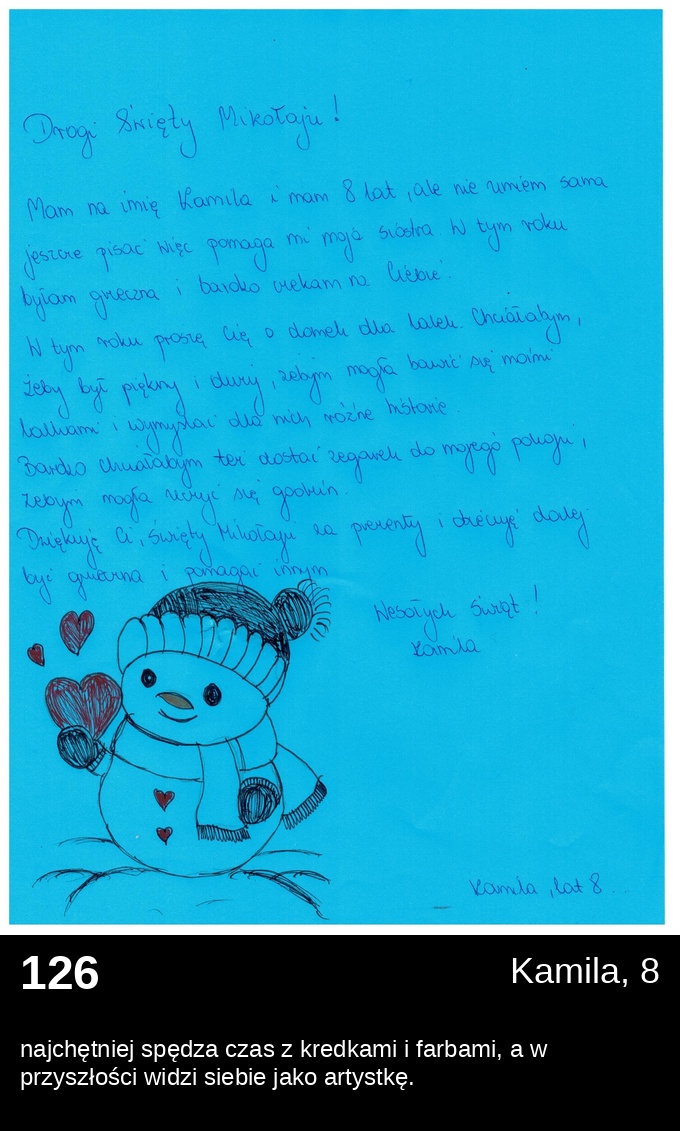 Drogi Święty Mikołaju!
Mam na imię Kamila i mam 8 lat, ale nie umiem sama
jeszcze pisać więc pomaga mi moja siostra. W tym roku
byłam grzeczna i bardzo czekam na Ciebie.
W tym roku proszę Cię o domek dla lalek. Chciałabym,
żeby był piękny i duży, żebym mogła bawić się moimi
lalkami i wymyślać dla nich różne historie.
Bardzo chciałabym też dostać zegarek do mojego pokoju,
żebym mogła uczyć się godzin.
Dziękuję Ci, Święty Mikołaju za prezenty i obiecuję dalej
być grzeczna i pomagać innym
Wesołych Świąt!
Kamila
Kamila, lat 8
126
Kamila, 8
najchętniej spędza czas z kredkami i farbami, a w
przyszłości widzi siebie jako artystkę.